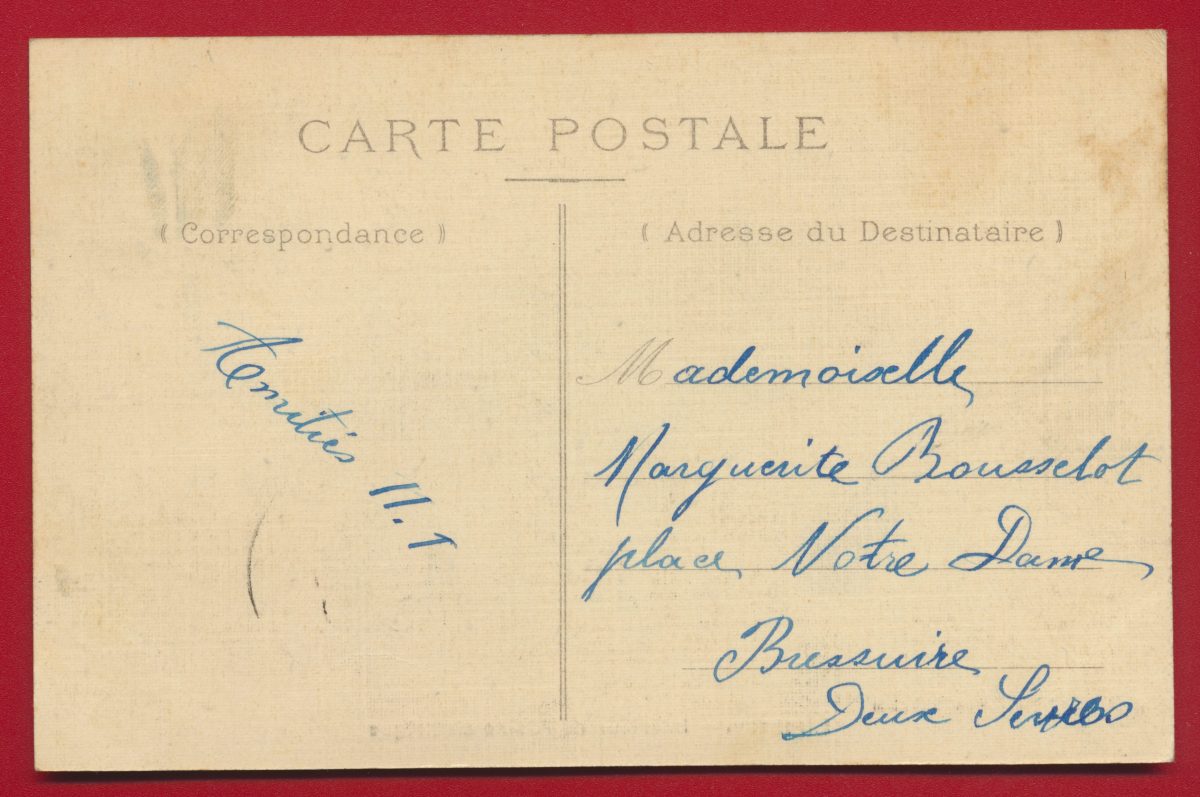 CARTE POSTALE
( Correspondance )
( Adresse du Destinataire )
Amitiés
11.1
Mademoiselle
Marguerite Bousselot
place Notre Dame
Bressuire
Deux Sevres